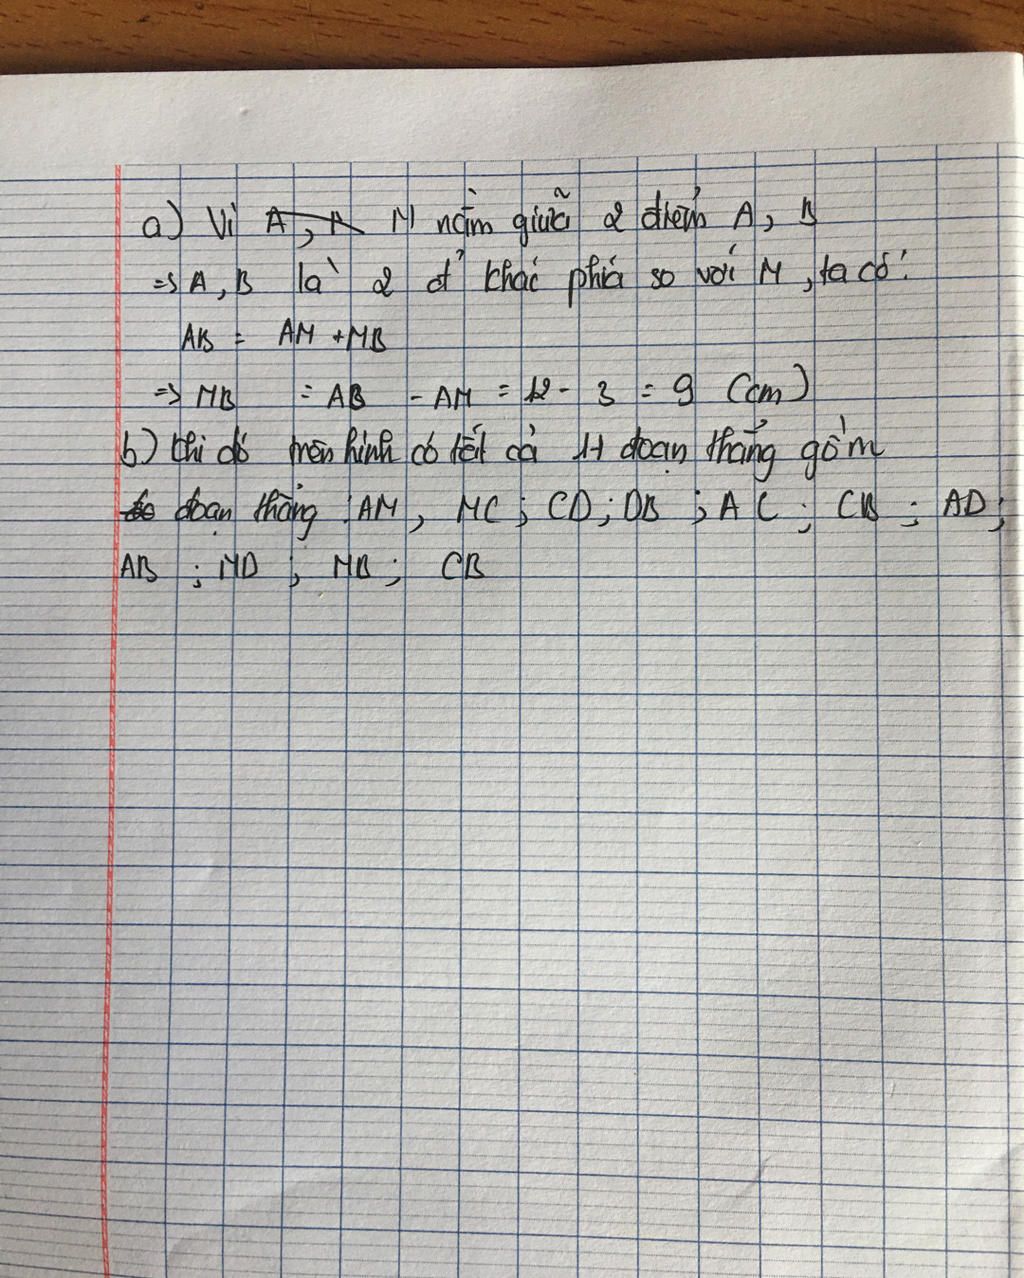 a) Vì M nằm giữa 2 điểm A, B
=> A, B là 2 đ' khác phía so với M, ta có:
AB = AM + MB
=> MB = AB - AM = 12 - 3 = 9 (cm)
b) Khi đó trên hình có tất cả 11 đoạn thẳng gồm
đoạn thẳng : AM, MC; CD; DB; AC; CB; AD;
AB; MD; MB; CB